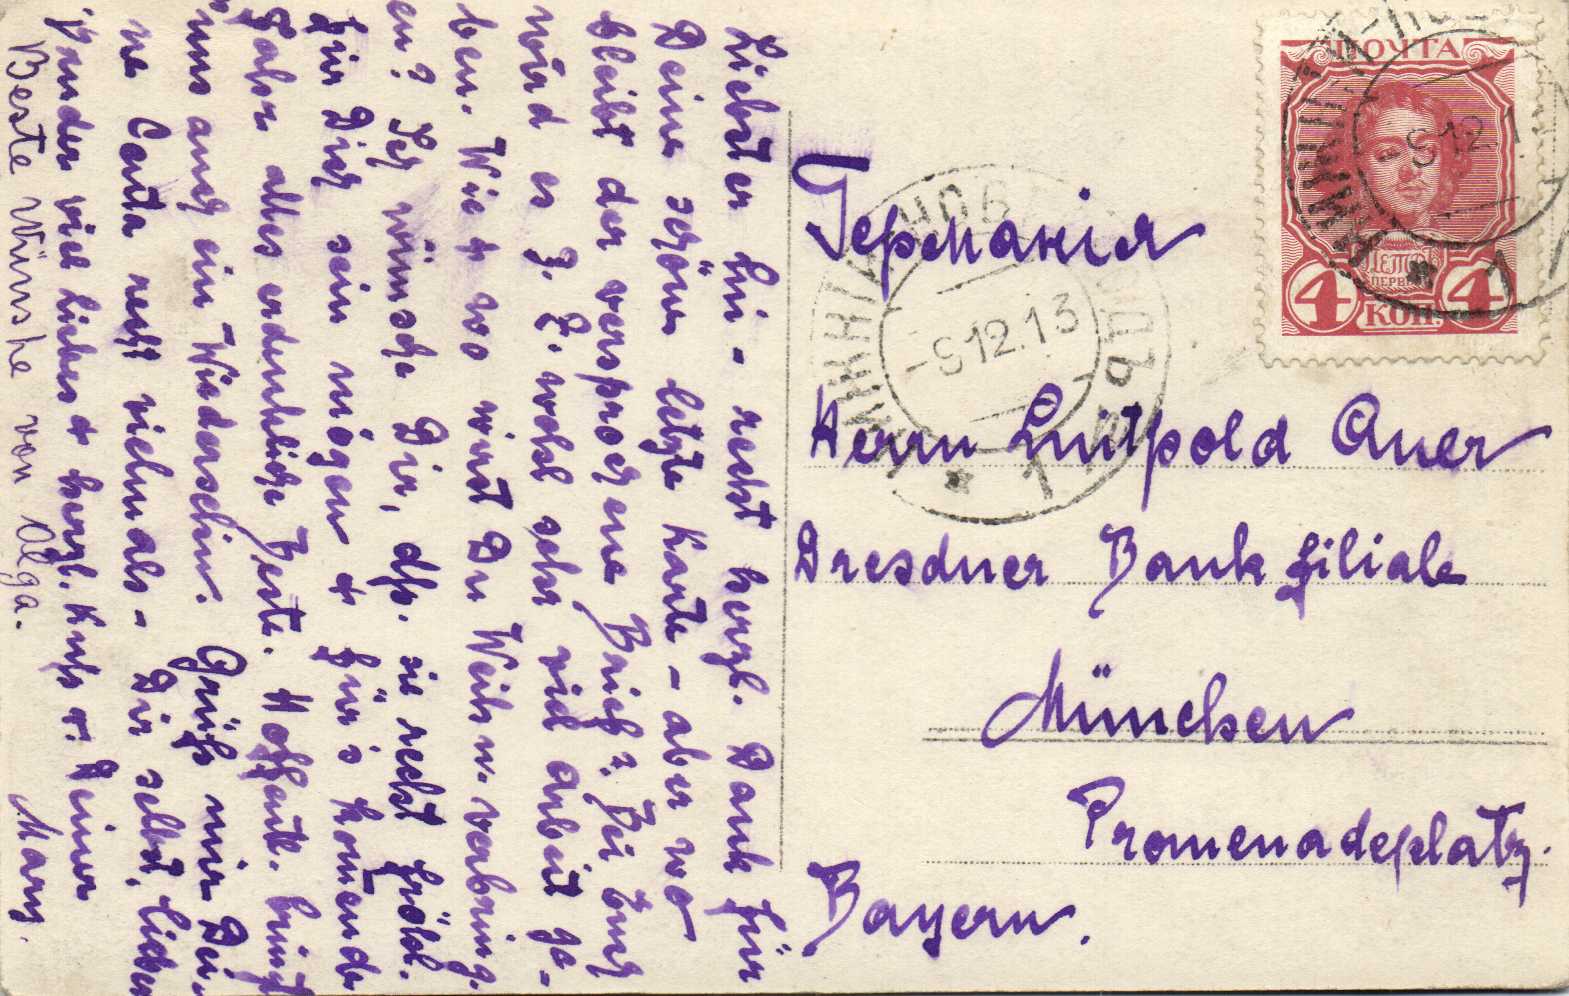 Liebster Lui - recht herzl. Dank für
Deine schöne letzte Karte - aber wo
bleibt der versprochene Brief? Bei Euch
wird es z. Z. wohl sehr viel Arbeit ge-
ben. Wie & wo wirst Du Weihn. verbring.
en? Ich wünsche Dir, dss. sie recht fröhl.
für Dich sein mögen & für's kom̄ende
Jahr alles erdenkliche Beste. Hoffentl. bringt
uns auch ein Wiedersehn. Grüsse mir Dei-
ne recht vielmals - Dir selbst, lieber
viel liebes & herzl. Kuss v. Deiner
Mary.
Beste Wünsche von Olga.
ПОЧТА
4 КОП. 4
-8 12.1
1
-8 12.13
1
Германія
Herrn Luitpold Auer
Dresdner Bank filiale
München
Promenadeplatz.
Bayern.